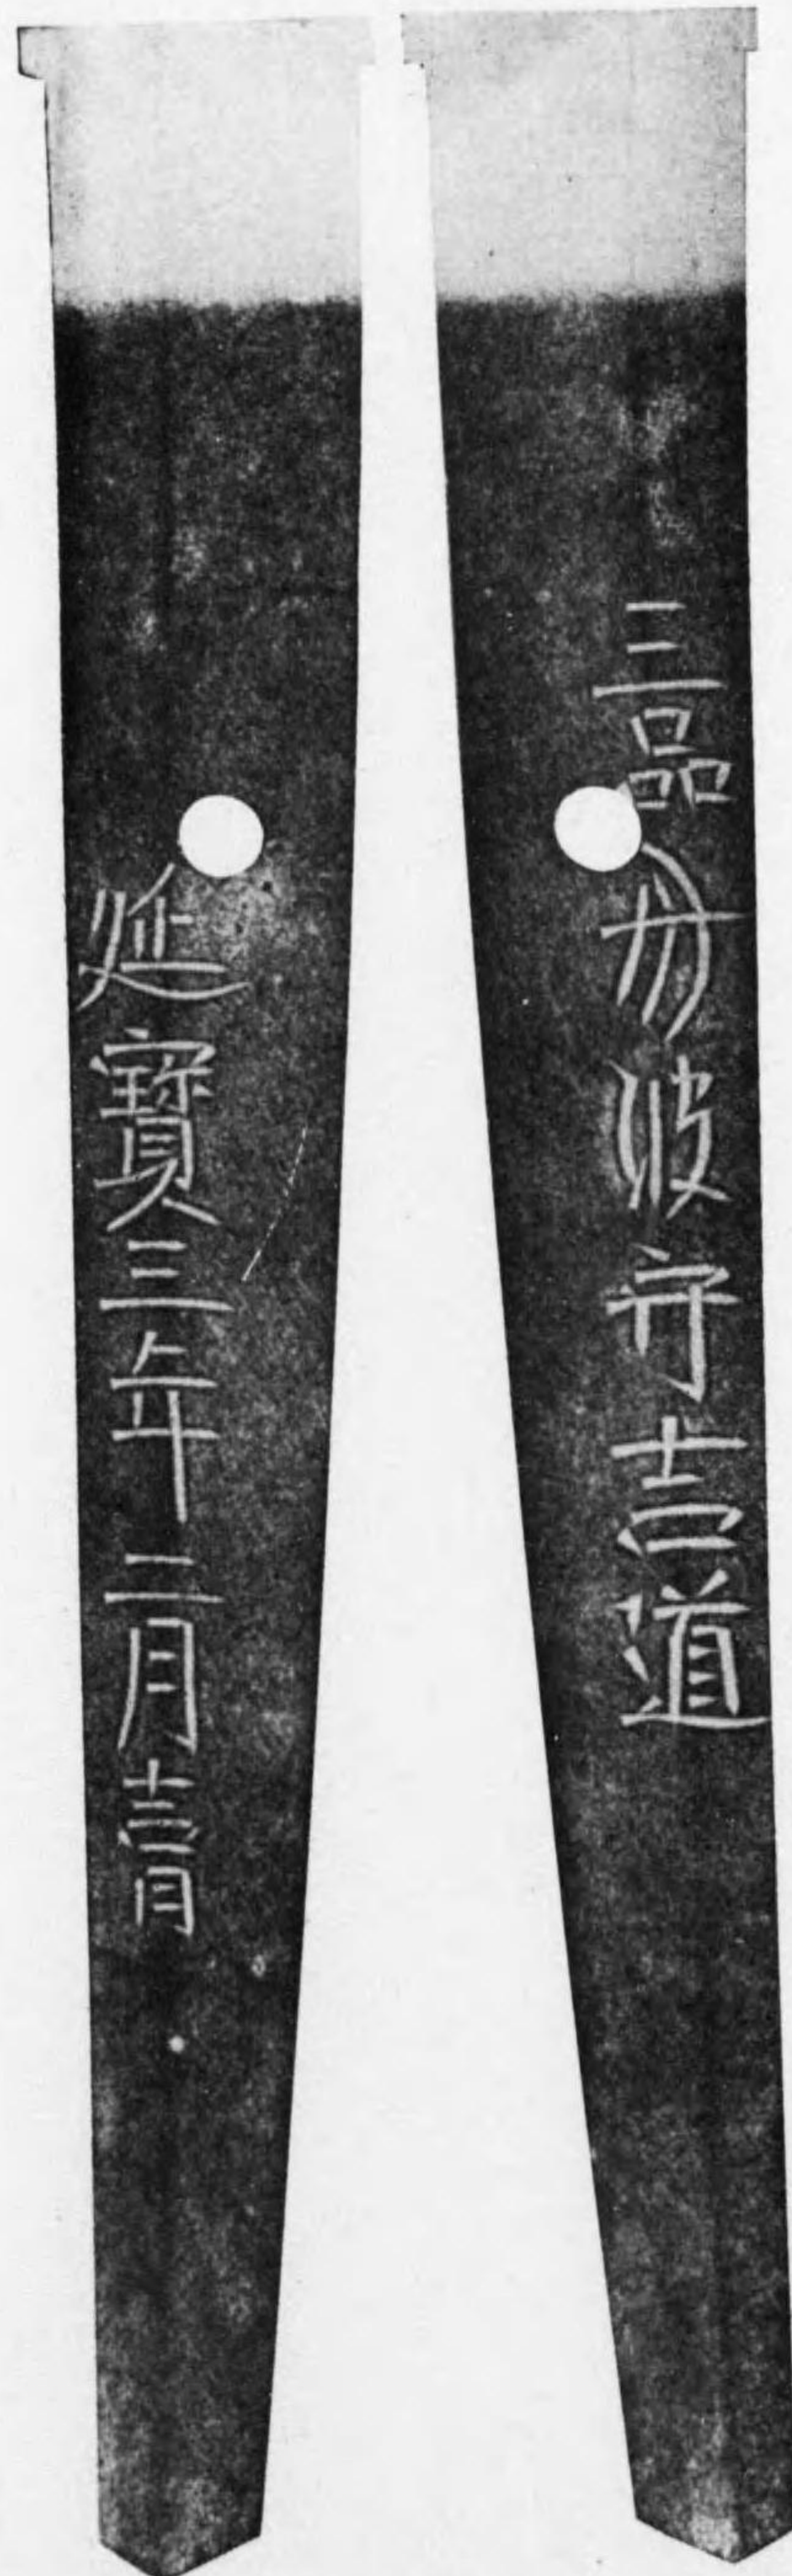 三品丹波守吉道
延寶三年二月吉日